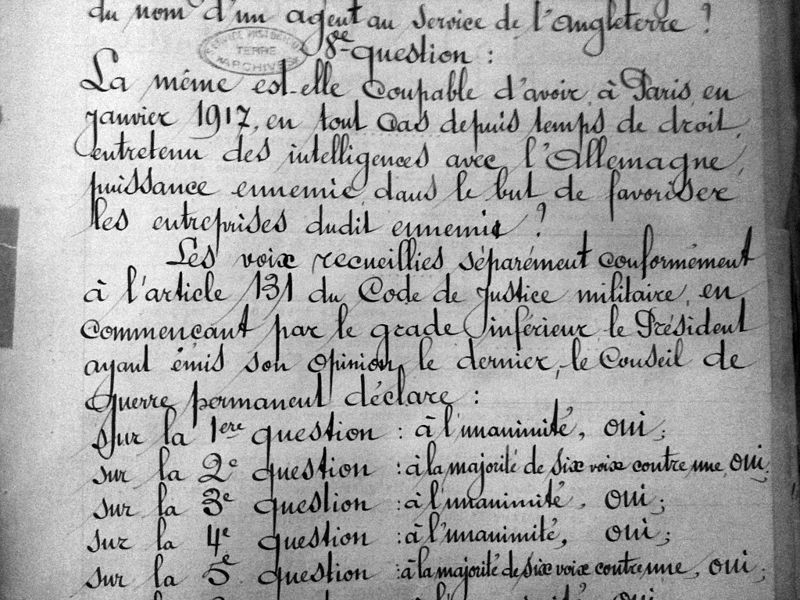 du nom d'un agent au service de l'angleterre ?
TERRE
ARCHIVES
8e question :
La même est-elle coupable d'avoir, à Paris, en
janvier 1917, en tout cas depuis temps de droit,
entretenu des intelligences avec l'Allemagne,
puissance ennemie, dans le but de favoriser
les entreprises dudit ennemi ?
Les voix recueillies séparément conformément
à l'article 131 du Code de Justice militaire, en
commençant par le grade inférieur, le Président
ayant émis son opinion le dernier, le Conseil de
Guerre permanent déclare :
Sur la 1ere question : à l'unanimité, oui ;
sur la 2e question : à la majorité de six voix contre une, oui ;
sur la 3e question : à l'unanimité, oui ;
sur la 4e question : à l'unanimité, oui ;
sur la 5e question : à la majorité de six voix contre une, oui ;